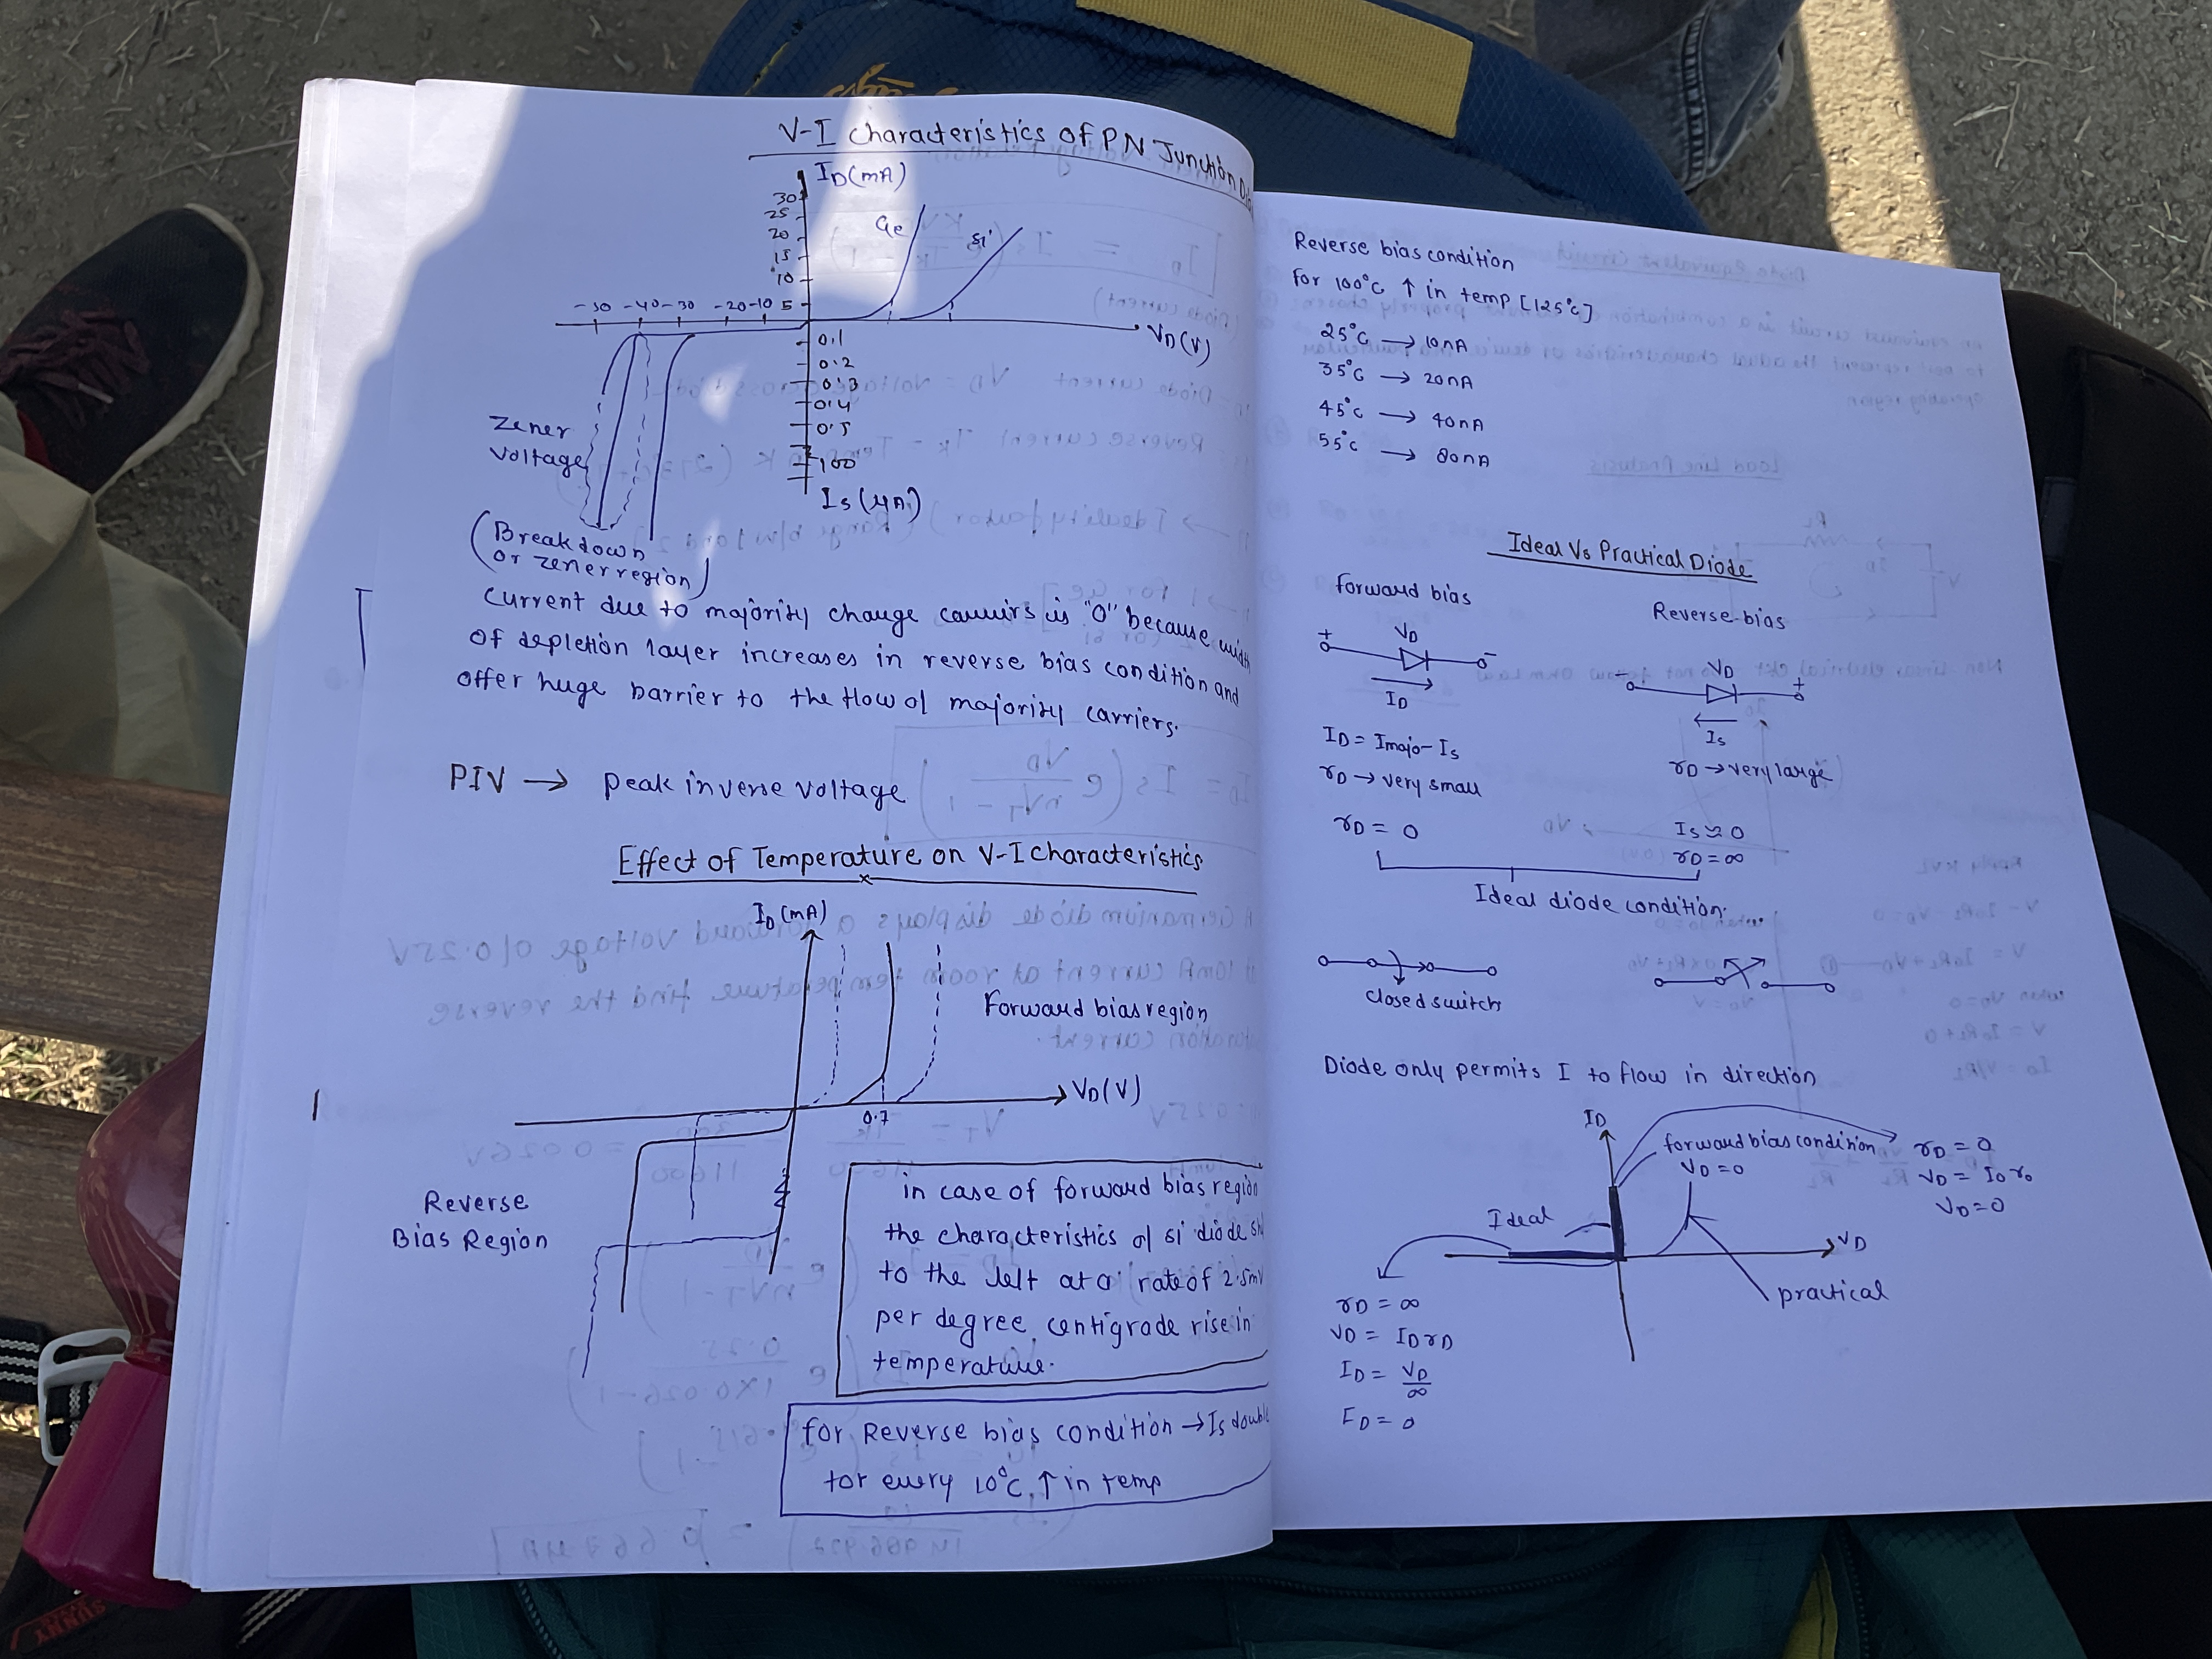 V-I characteristics of PN Junction
ID(mA)
30
25
20
15
10
5
Ge
si
-50 -40 -30 -20 -10
VD(V)
0.1
0.2
0.3
0.4
0.5
100
Is (μA)
zener
voltage
(Breakdown
or zener region)
current due to majority charge carriers is "0" because width
of depletion layer increases in reverse bias condition and
offer huge barrier to the flow of majority carriers.
PIV → Peak inverse voltage
Effect of Temperature on V-I characteristics
ID(mA)
Forward bias region
VD(V)
0.7
Reverse
Bias Region
in case of forward bias region
the characteristics of si diode
to the left at a rate of 2.5mv
per degree centigrade rise in
temperature.
for Reverse bias condition → Is double
for every 10°C ↑ in temp
Reverse bias condition
for 100°C ↑ in temp [125°C]
25°C → 10nA
35°C → 20nA
45°C → 40nA
55°C → 80nA
Ideal Vs Practical Diode
forward bias
+ VD -
ID
ID = Imajo - Is
rD → very small
rD = 0
Reverse-bias
- VD +
Is
rD → very large
Is ≈ 0
rD = ∞
Ideal diode condition.
closed switch
Diode only permits I to flow in direction
ID
forward bias condition
VD = 0
rD = 0
VD = ID rD
VD = 0
Ideal
VD
practical
rD = ∞
VD = IDrD
ID = VD/∞
ID = 0